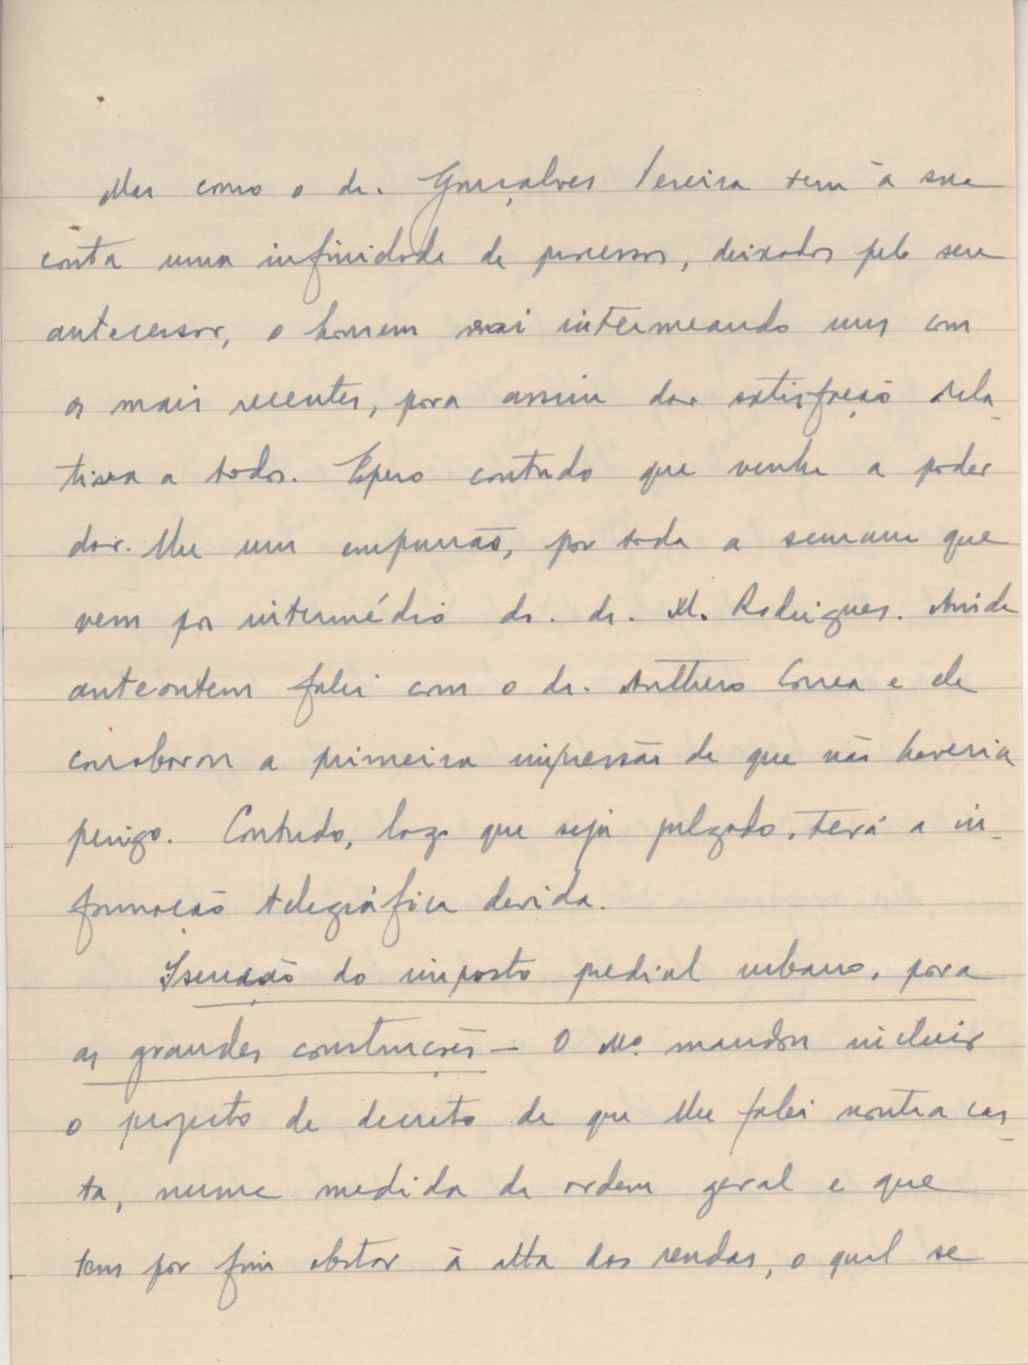 Mas como o dr. Gonçalves Pereira tem à sua
conta uma infinidade de processos, deixados pelo seu
antecessor, o homem vai intermeando uns com
os mais recentes, para assim dar satisfação rela-
tiva a todos. Espero contudo que venha a poder
dar-lhe um empurrão, por toda a semana que
vem por intermédio do dr. M. Rodrigues. Ainda
anteontem falei com o dr. Anthero Correa e ele
corroborou a primeira impressão de que não haveria
perigo. Contudo, logo que seja julgado, terá a in-
formação telegráfica devida.
Isenção do imposto predial urbano, para
as grandes construções — O Mº. mandou incluir
o projecto de decreto de que lhe falei noutra car-
ta, numa medida de ordem geral e que
tem por fim obstar à alta das rendas, o qual se